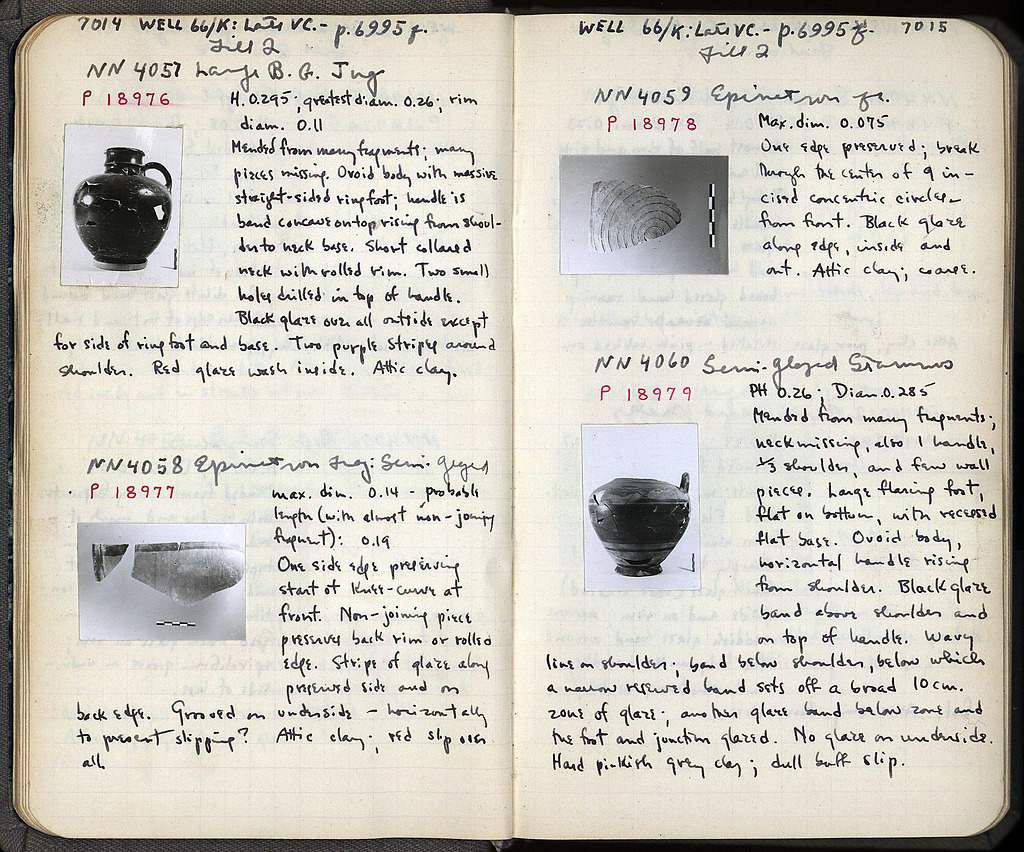 7014 WELL 66/K: Late VC. - p. 6995 f.
Fill 2
NN 4057 Large B. G. Jug
P 18976
H. 0.295; greatest diam. 0.26; rim
diam. 0.11
Mended from many fragments; many
pieces missing. Ovoid body with massive
straight-sided ring foot; handle is
band concave on top rising from shoul-
der to neck base. Short collared
neck with rolled rim. Two small
holes drilled in top of handle.
Black glaze over all outside except
for side of ring foot and base. Two purple stripes around
shoulder. Red glaze wash inside. Attic clay.
NN 4058 Epinetron frag: Semi-Glazed
P 18977
max. dim. 0.14 - probable
length (with almost non-joining
fragment): 0.19
One side edge preserving
start of knee-curve at
front. Non-joining piece
preserves back rim or rolled
edge. Stripe of glaze along
preserved side and on
back edge. Grooved on underside - horizontally
to prevent slipping? Attic clay; red slip over
all
WELL 66/K: Late VC. - p. 6995 f. 7015
Fill 2
NN 4059 Epinetron fr.
P 18978
Max. dim. 0.075
One edge preserved; break
through the center of 9 in-
cised concentric circles
from front. Black glaze
along edge, inside and
out. Attic clay; coarse.
NN 4060 Semi-glazed Stamnos
P 18979
PH 0.26; Diam. 0.285
Mended from many fragments;
neck missing, also 1 handle,
1/3 shoulder, and few wall
pieces. Large flaring foot,
flat on bottom, with recessed
flat base. Ovoid body,
horizontal handle rising
from shoulder. Black glaze
band above shoulder and
on top of handle. Wavy
line on shoulder; band below shoulder, below which
a narrow reserved band sets off a broad 10 cm.
zone of glaze; another glaze band below zone and
the foot and junction glazed. No glaze on underside.
Hard pinkish grey clay; dull buff slip.